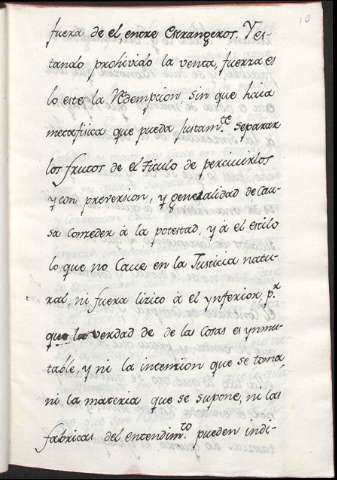 10
fuera de el, entre estrangeros. Y es-
tando prohivido la venta, fuerza es
lo este la Redempcion sin que haia
metafisica que pueda justam.te separar
los frutos de el Titulo de percivirlos
y con preversion, y generalidad de cau-
sa conceder à la potestad, y à el estilo
lo que no cave en la Justicia natu-
ral, ni fuera licito à el ynferior, p.r
que la verdad de de las cosas es ynmu-
table, y ni la intencion que se toma,
ni la materia que se supone, ni las
fabricas del entendim.to pueden indi-